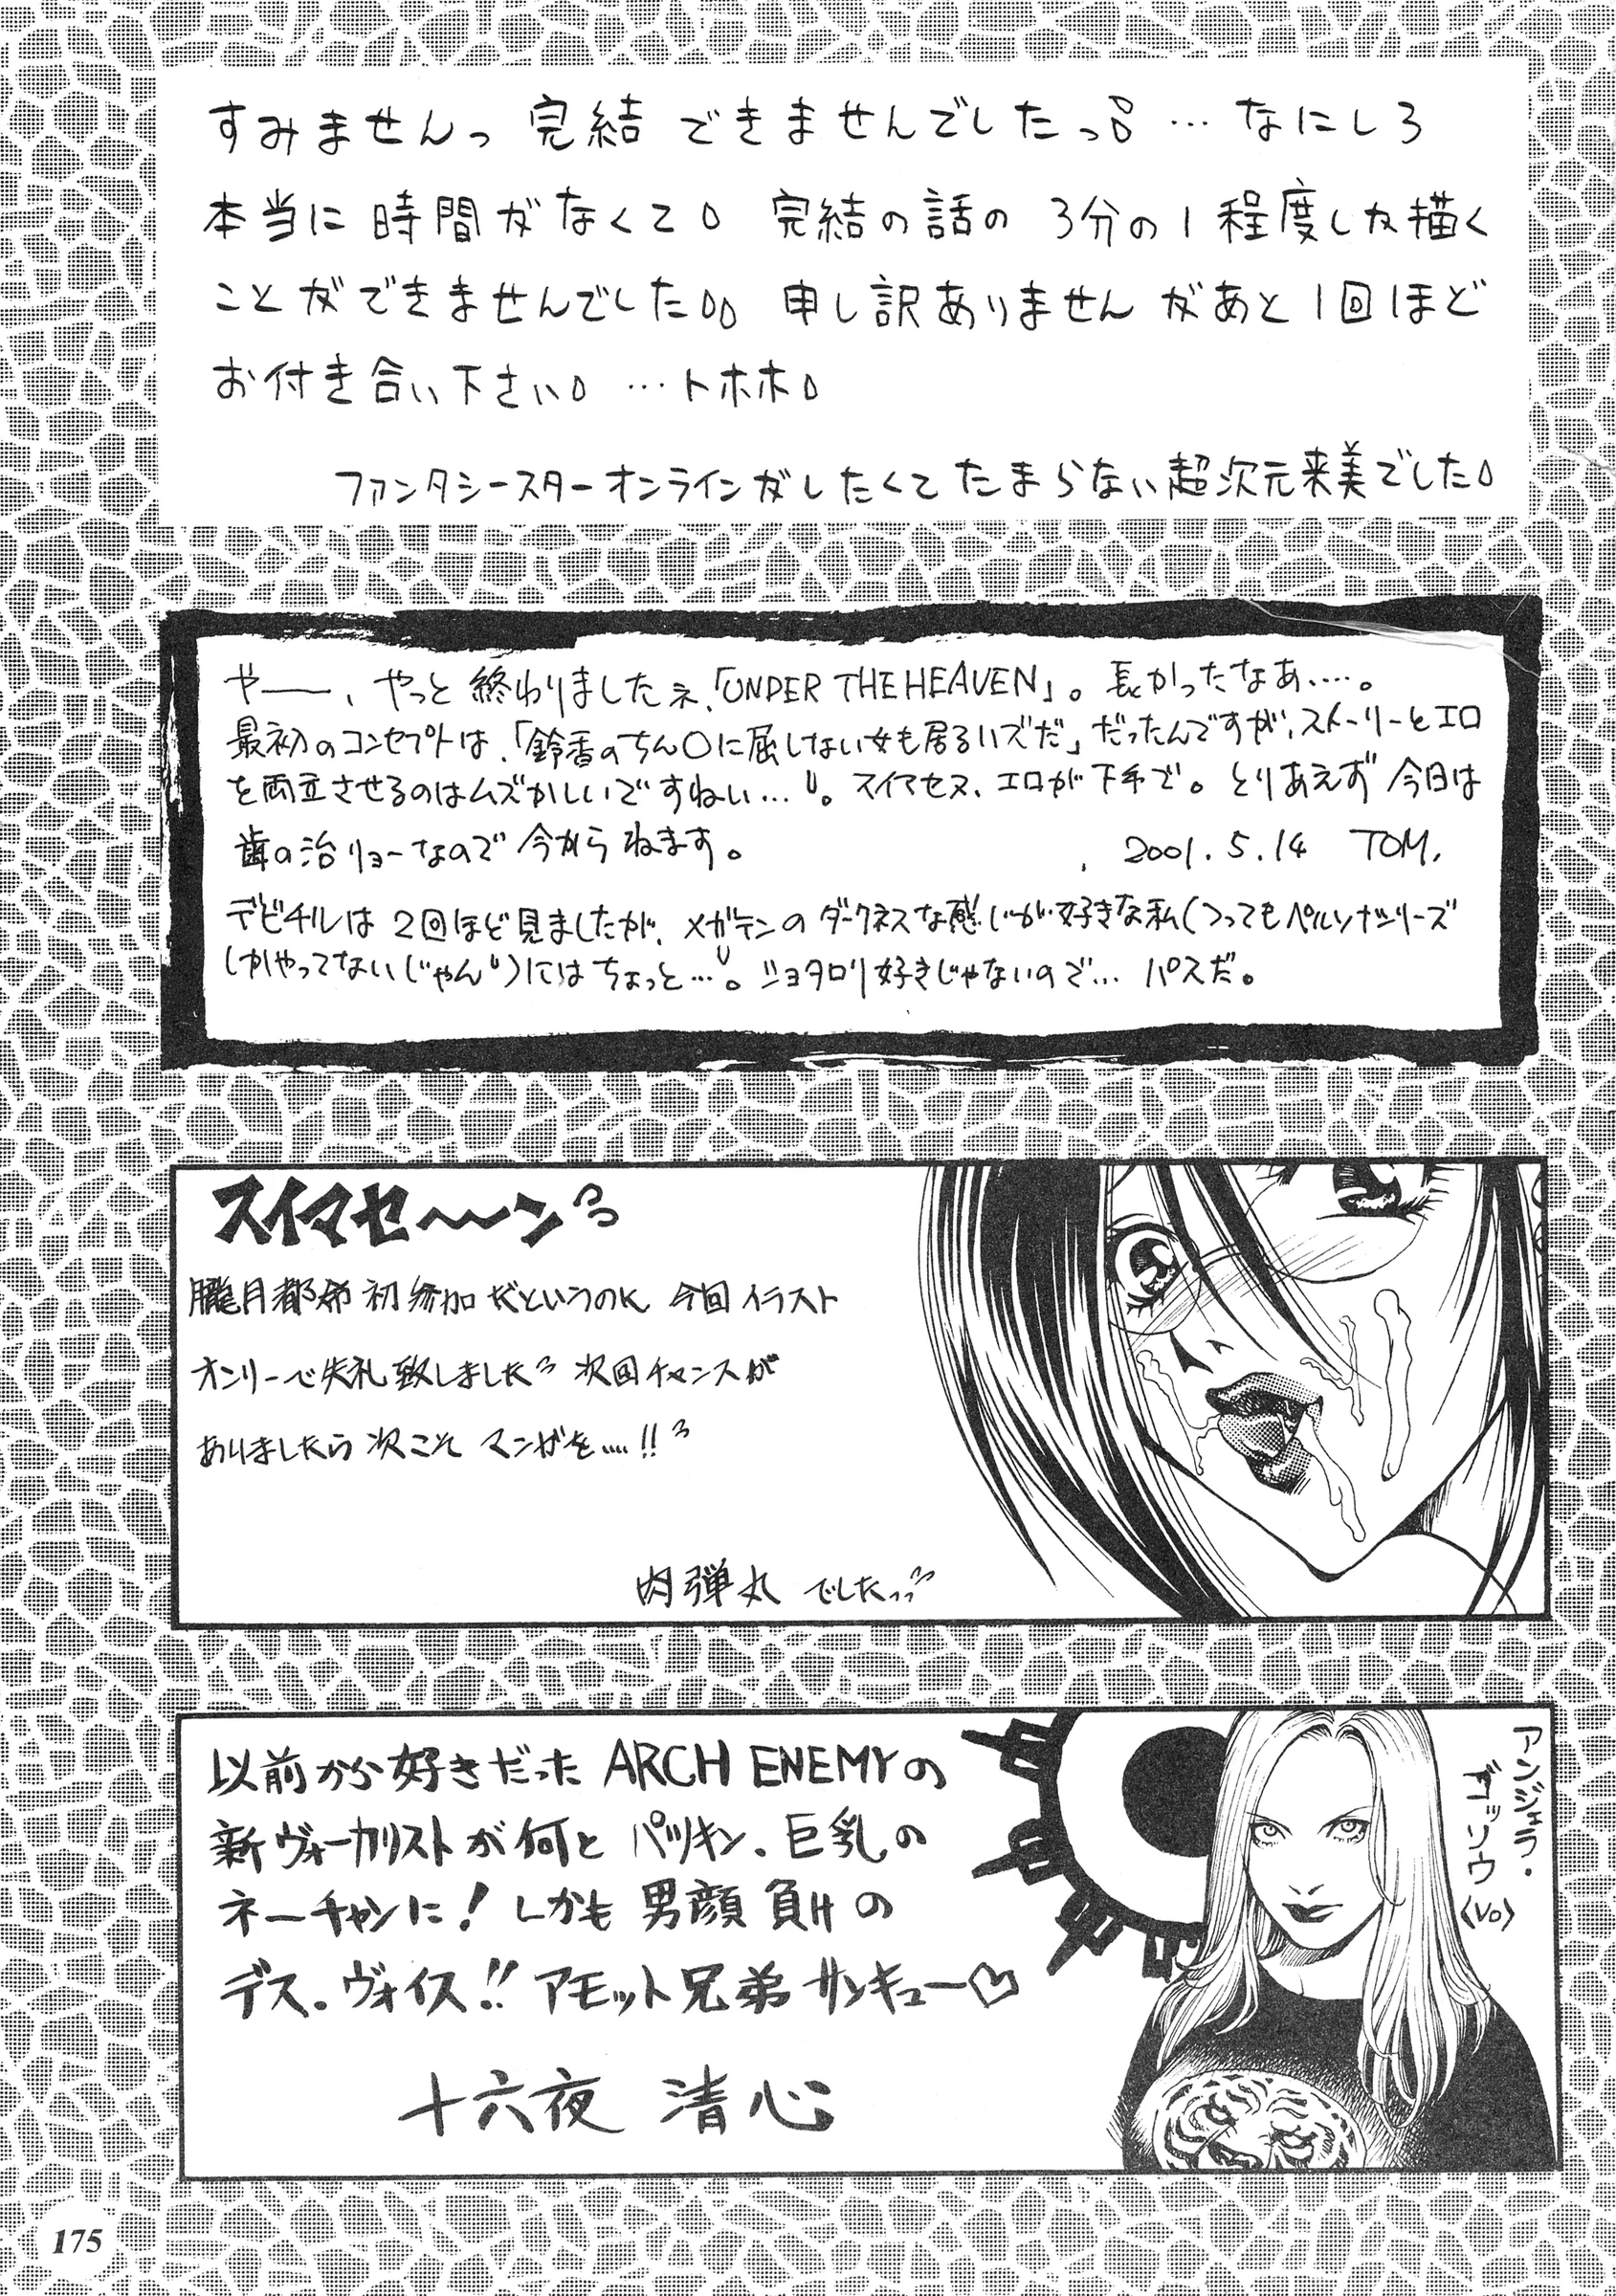 すみませんっ 完結 できませんでしたっ … なにしろ
本当に 時間がなくて。 完結の話の 3分の1程度しか描く
ことができませんでした。。 申し訳ありませんがあと1回ほど
お付き合い下さい。 …トホホ。
ファンタシースターオンラインがしたくてたまらない超次元来美でした。
やー、やっと終わりましたネ、「UNDER THE HEAVEN」。長かったなあ….。
最初のコンセプトは、「鈴香のちん〇に屈しない女も居るハズだ」だったんですが、ストーリーとエロ
を両立させるのはムズかしいですねい…。スイマセヌ、エロが下手で。とりあえず今日は
歯の治リョーなので今からねます。
2001.5.14 TOM.
デビチルは2回ほど見ましたが、メガテンのダークネスな感じが好きな私(つってもペルソナシリーズ
しかやってないじゃん)にはちょっと…。ショタロリ好きじゃないので… パスだ。
スイマセ〜〜ン
朧月都希初参加だというのに 今回イラスト
オンリーで失礼致しました 次回チャンスが
ありましたら次こそ マンガを….!!
肉弾丸 でしたっっ
以前から好きだった ARCH ENEMYの
新ヴォーカリストが何と パツキン.巨乳の
ネーチャンに! しかも男顔負けの
デス.ヴォイス!! アモット兄弟サンキュー♡
十六夜 清心
アンジェラ・
ゴッソウ
〈VO〉
175